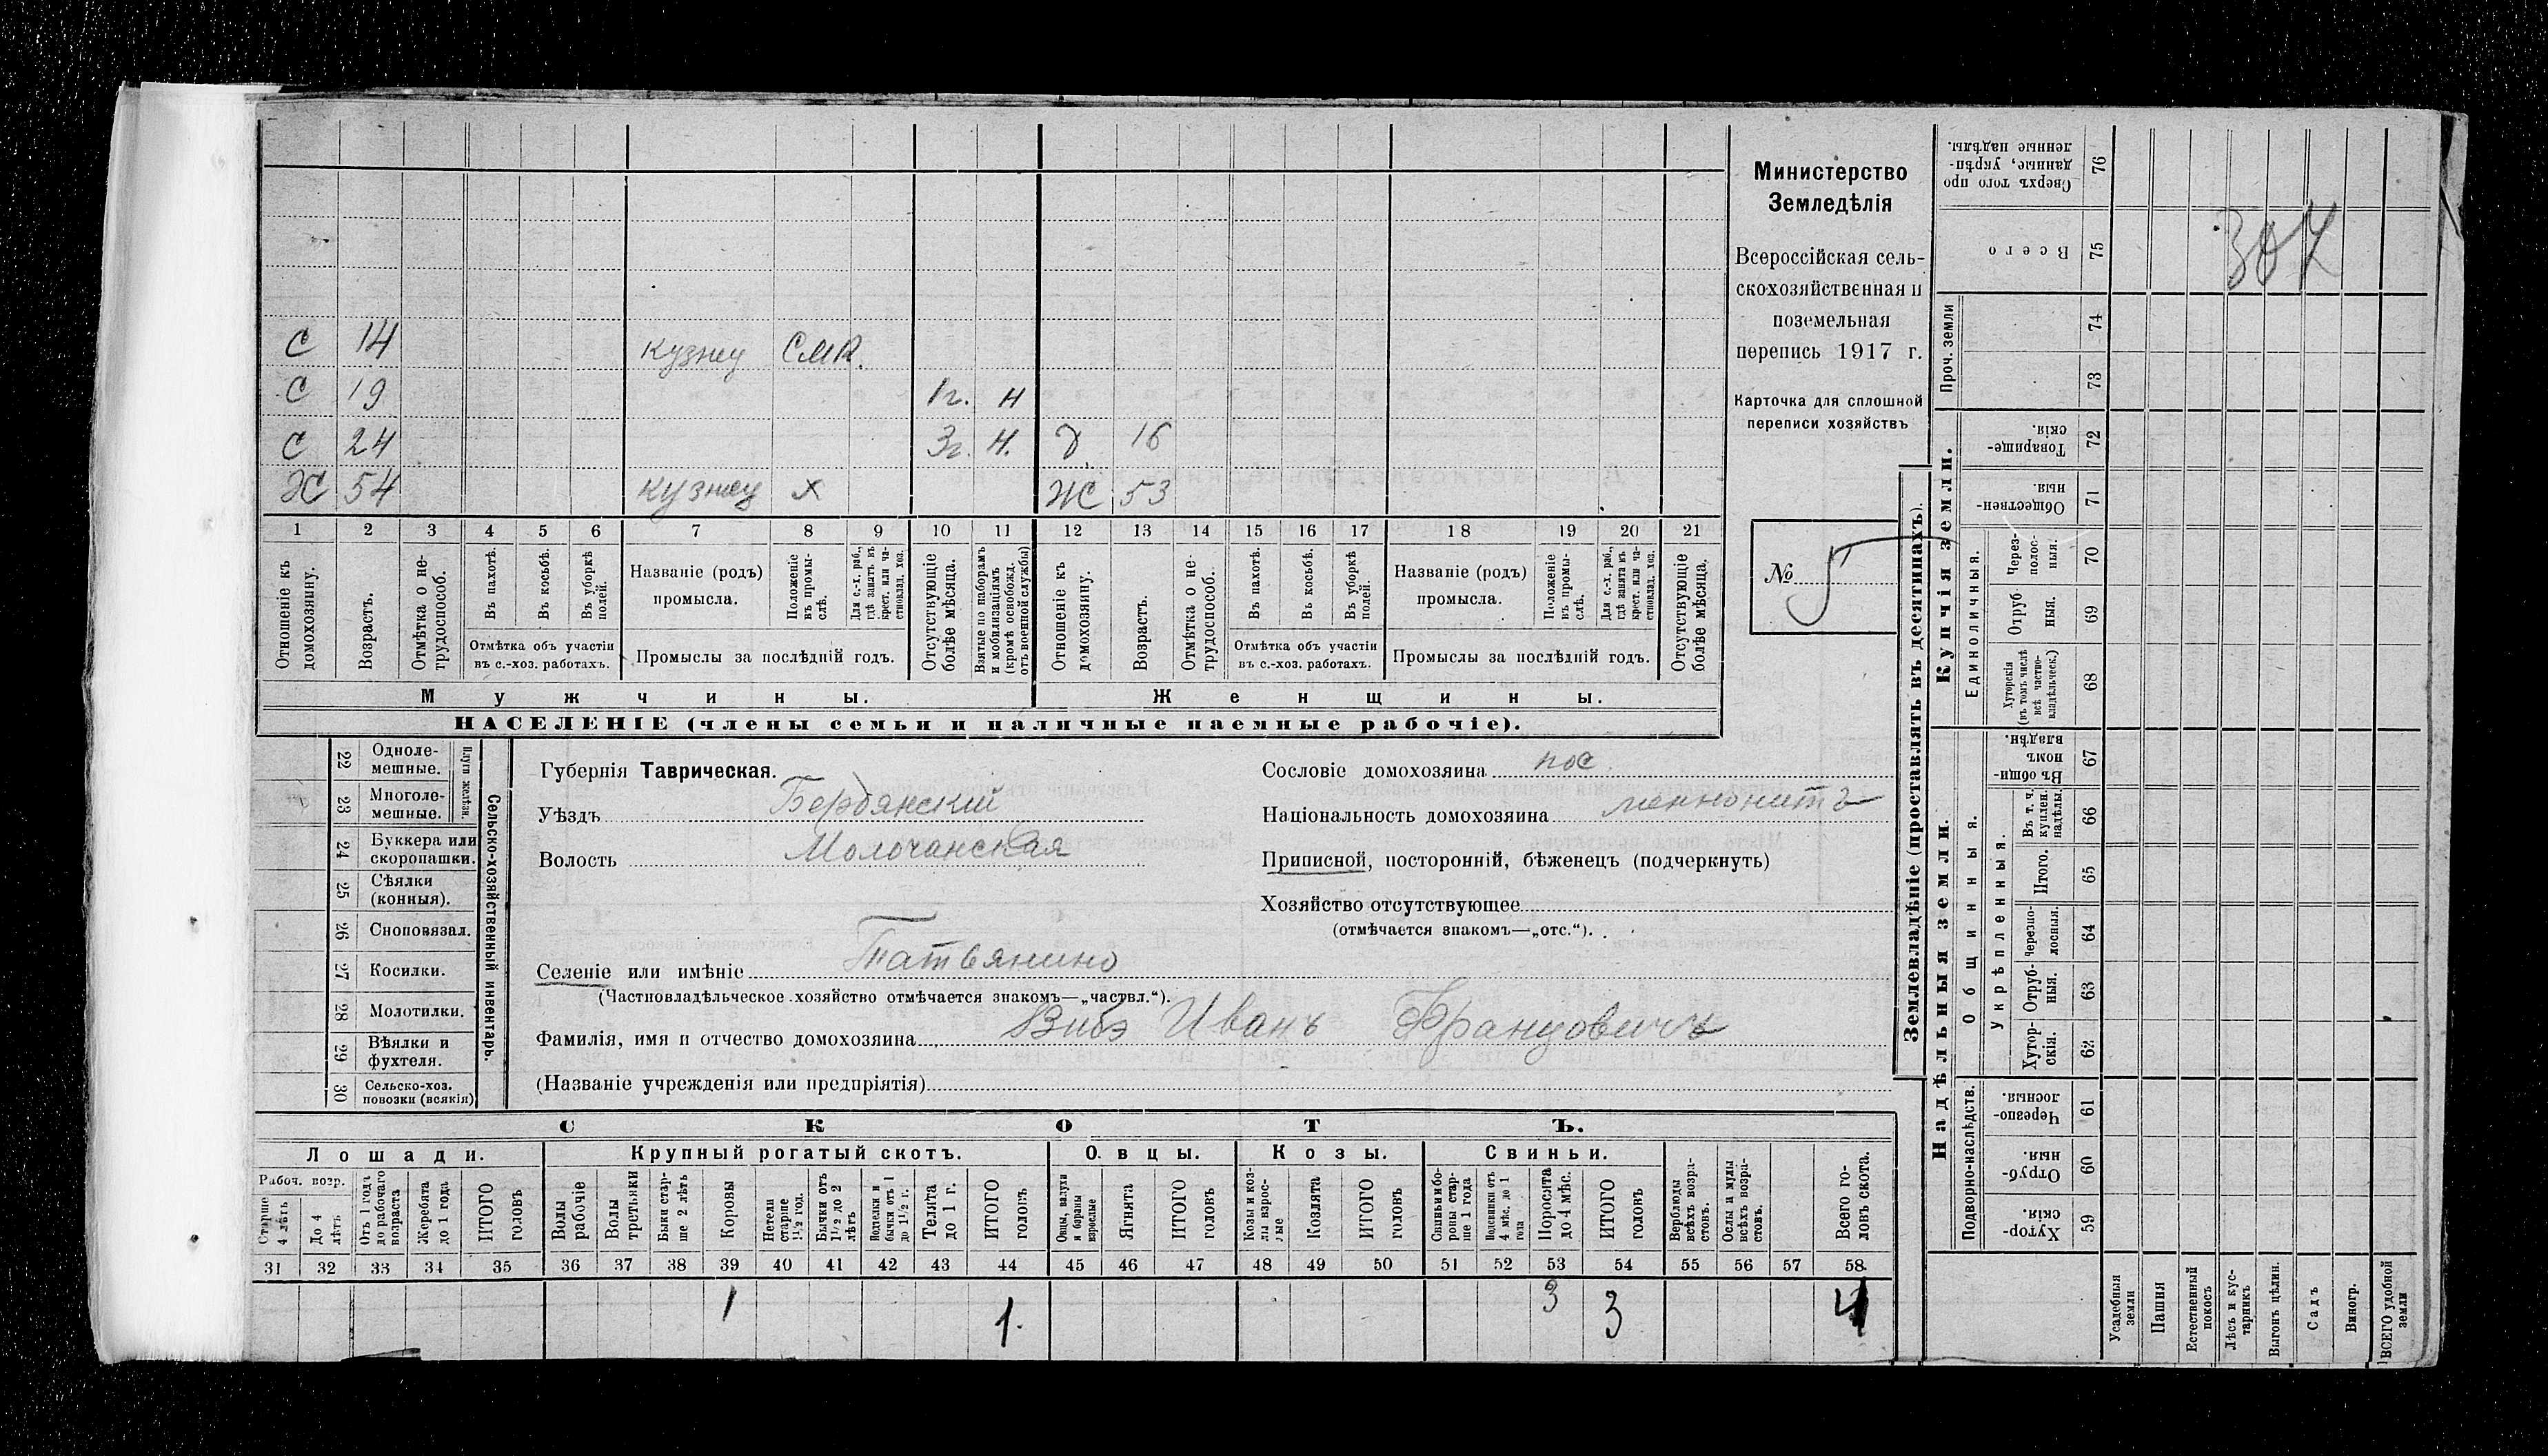 С 14 кузнец СМR.
С 19 1г. н
С 24 3г. н. д 16
Х 54 кузнец х Ж 53
1 2 3 4 5 6 7 8 9 10 11 12 13 14 15 16 17 18 19 20 21
Отношеніе къ домохозяину.
Возрастъ.
Отмѣтка о нетрудоспособ.
Въ пахотѣ.
Въ косьбѣ.
Въ уборкѣ полей.
Отмѣтка объ участіи въ с.-хоз. работахъ.
Названіе (родъ) промысла.
Положеніе въ промыслѣ.
Для с.-х. раб., гдѣ занятъ въ крест. или частновлад. хоз.
Промыслы за послѣдній годъ.
Отсутствующіе болѣе мѣсяца.
Взятые по наборамъ и мобилизаціямъ (кромѣ освобожд. отъ военной службы)
Отношеніе къ домохозяину.
Возрастъ.
Отмѣтка о нетрудоспособ.
Въ пахотѣ.
Въ косьбѣ.
Въ уборкѣ полей.
Отмѣтка объ участіи въ с.-хоз. работахъ.
Названіе (родъ) промысла.
Положеніе въ промыслѣ.
Для с.-х. раб., гдѣ занята въ крест. или частновлад. хоз.
Промыслы за послѣдній годъ.
Отсутствующіе болѣе мѣсяца.
Мужчины.
Женщины.
НАСЕЛЕНІЕ (члены семьи и наличные наемные рабочіе).
Министерство
Земледѣлія
Всероссійская сель-
скохозяйственная и
поземельная
перепись 1917 г.
Карточка для сплошной
переписи хозяйствъ
№ 5
Сельско-хозяйственный инвентарь.
Плуги желѣзн.
22 Одноле-
мешные.
23 Многоле-
мешные.
24 Буккера или
скоропашки.
25 Сѣялки
(конныя).
26 Сноповязал.
27 Косилки.
28 Молотилки.
29 Вѣялки и
фухтеля.
30 Сельско-хоз.
повозки (всякія)
Губернія Таврическая.
Уѣздъ Бердянский
Волость Молочанская
Селеніе или имѣніе Татьянино
(Частновладѣльческое хозяйство отмѣчается знакомъ—„частвл.“).
Фамилія, имя и отчество домохозяина Вибэ Иванъ Францовичъ
(Названіе учрежденія или предпріятія)
Сословіе домохозяина пос.
Національность домохозяина меннонитъ
Приписной, посторонній, бѣженецъ (подчеркнуть)
Хозяйство отсутствующее
(отмѣчается знакомъ—„отс.“).
СКОТЪ.
Лошади.
Крупный рогатый скотъ.
Овцы.
Козы.
Свиньи.
Рабоч. возр.
Старше 4 лѣтъ
До 4 лѣтъ
Отъ 1 года до рабочаго возраста
Жеребята до 1 года
ИТОГО головъ
Волы рабочіе
Волы третьяки
Быки старше 2 лѣтъ
Коровы
Нетели старше 1½ год.
Бычки отъ 1½ до 2 лѣтъ
Подтелки и бычки отъ 1 до 1½ г.
Телята до 1 г.
ИТОГО головъ
Овцы, валухи и бараны взрослые
Ягнята
ИТОГО головъ
Козы и козлы взрослые
Козлята
ИТОГО головъ
Свиньи и боровы старше 1 года
Подсвинки отъ 4 мѣс. до 1 года
Поросята до 4 мѣс.
ИТОГО головъ
Верблюды всѣхъ возрастовъ.
Ослы и мулы всѣхъ возрастовъ.
Всего головъ скота.
31 32 33 34 35 36 37 38 39 40 41 42 43 44 45 46 47 48 49 50 51 52 53 54 55 56 57 58
1 1. 3 3 4
Землевладѣніе (проставлять въ десятинахъ).
Купчія земли.
Надѣльныя земли.
Сверхъ того проданные, укрѣпленные надѣлы. 76
Всего 75
307
Проч. земли
74
73
Товарищескія. 72
Общественныя. 71
Единоличныя.
Черезполосныя. 70
Отрубныя. 69
Хуторскія (въ томъ числѣ всѣ частновладѣльческ.) 68
Общинныя.
Въ общинномъ владѣн. 67
Укрѣпленныя.
Въ т. ч. куплен. надѣлы. 66
Итого. 65
Черезполосныя. 64
Отрубныя. 63
Хуторскія. 62
Подворно-наслѣдств.
Черезполосныя. 61
Отрубныя. 60
Хуторскія. 59
Усадебныя земли
Пашня
Естественный покосъ
Лѣсъ и кустарникъ
Выгонъ цѣлин.
Садъ
Виногр.
ВСЕГО удобной земли